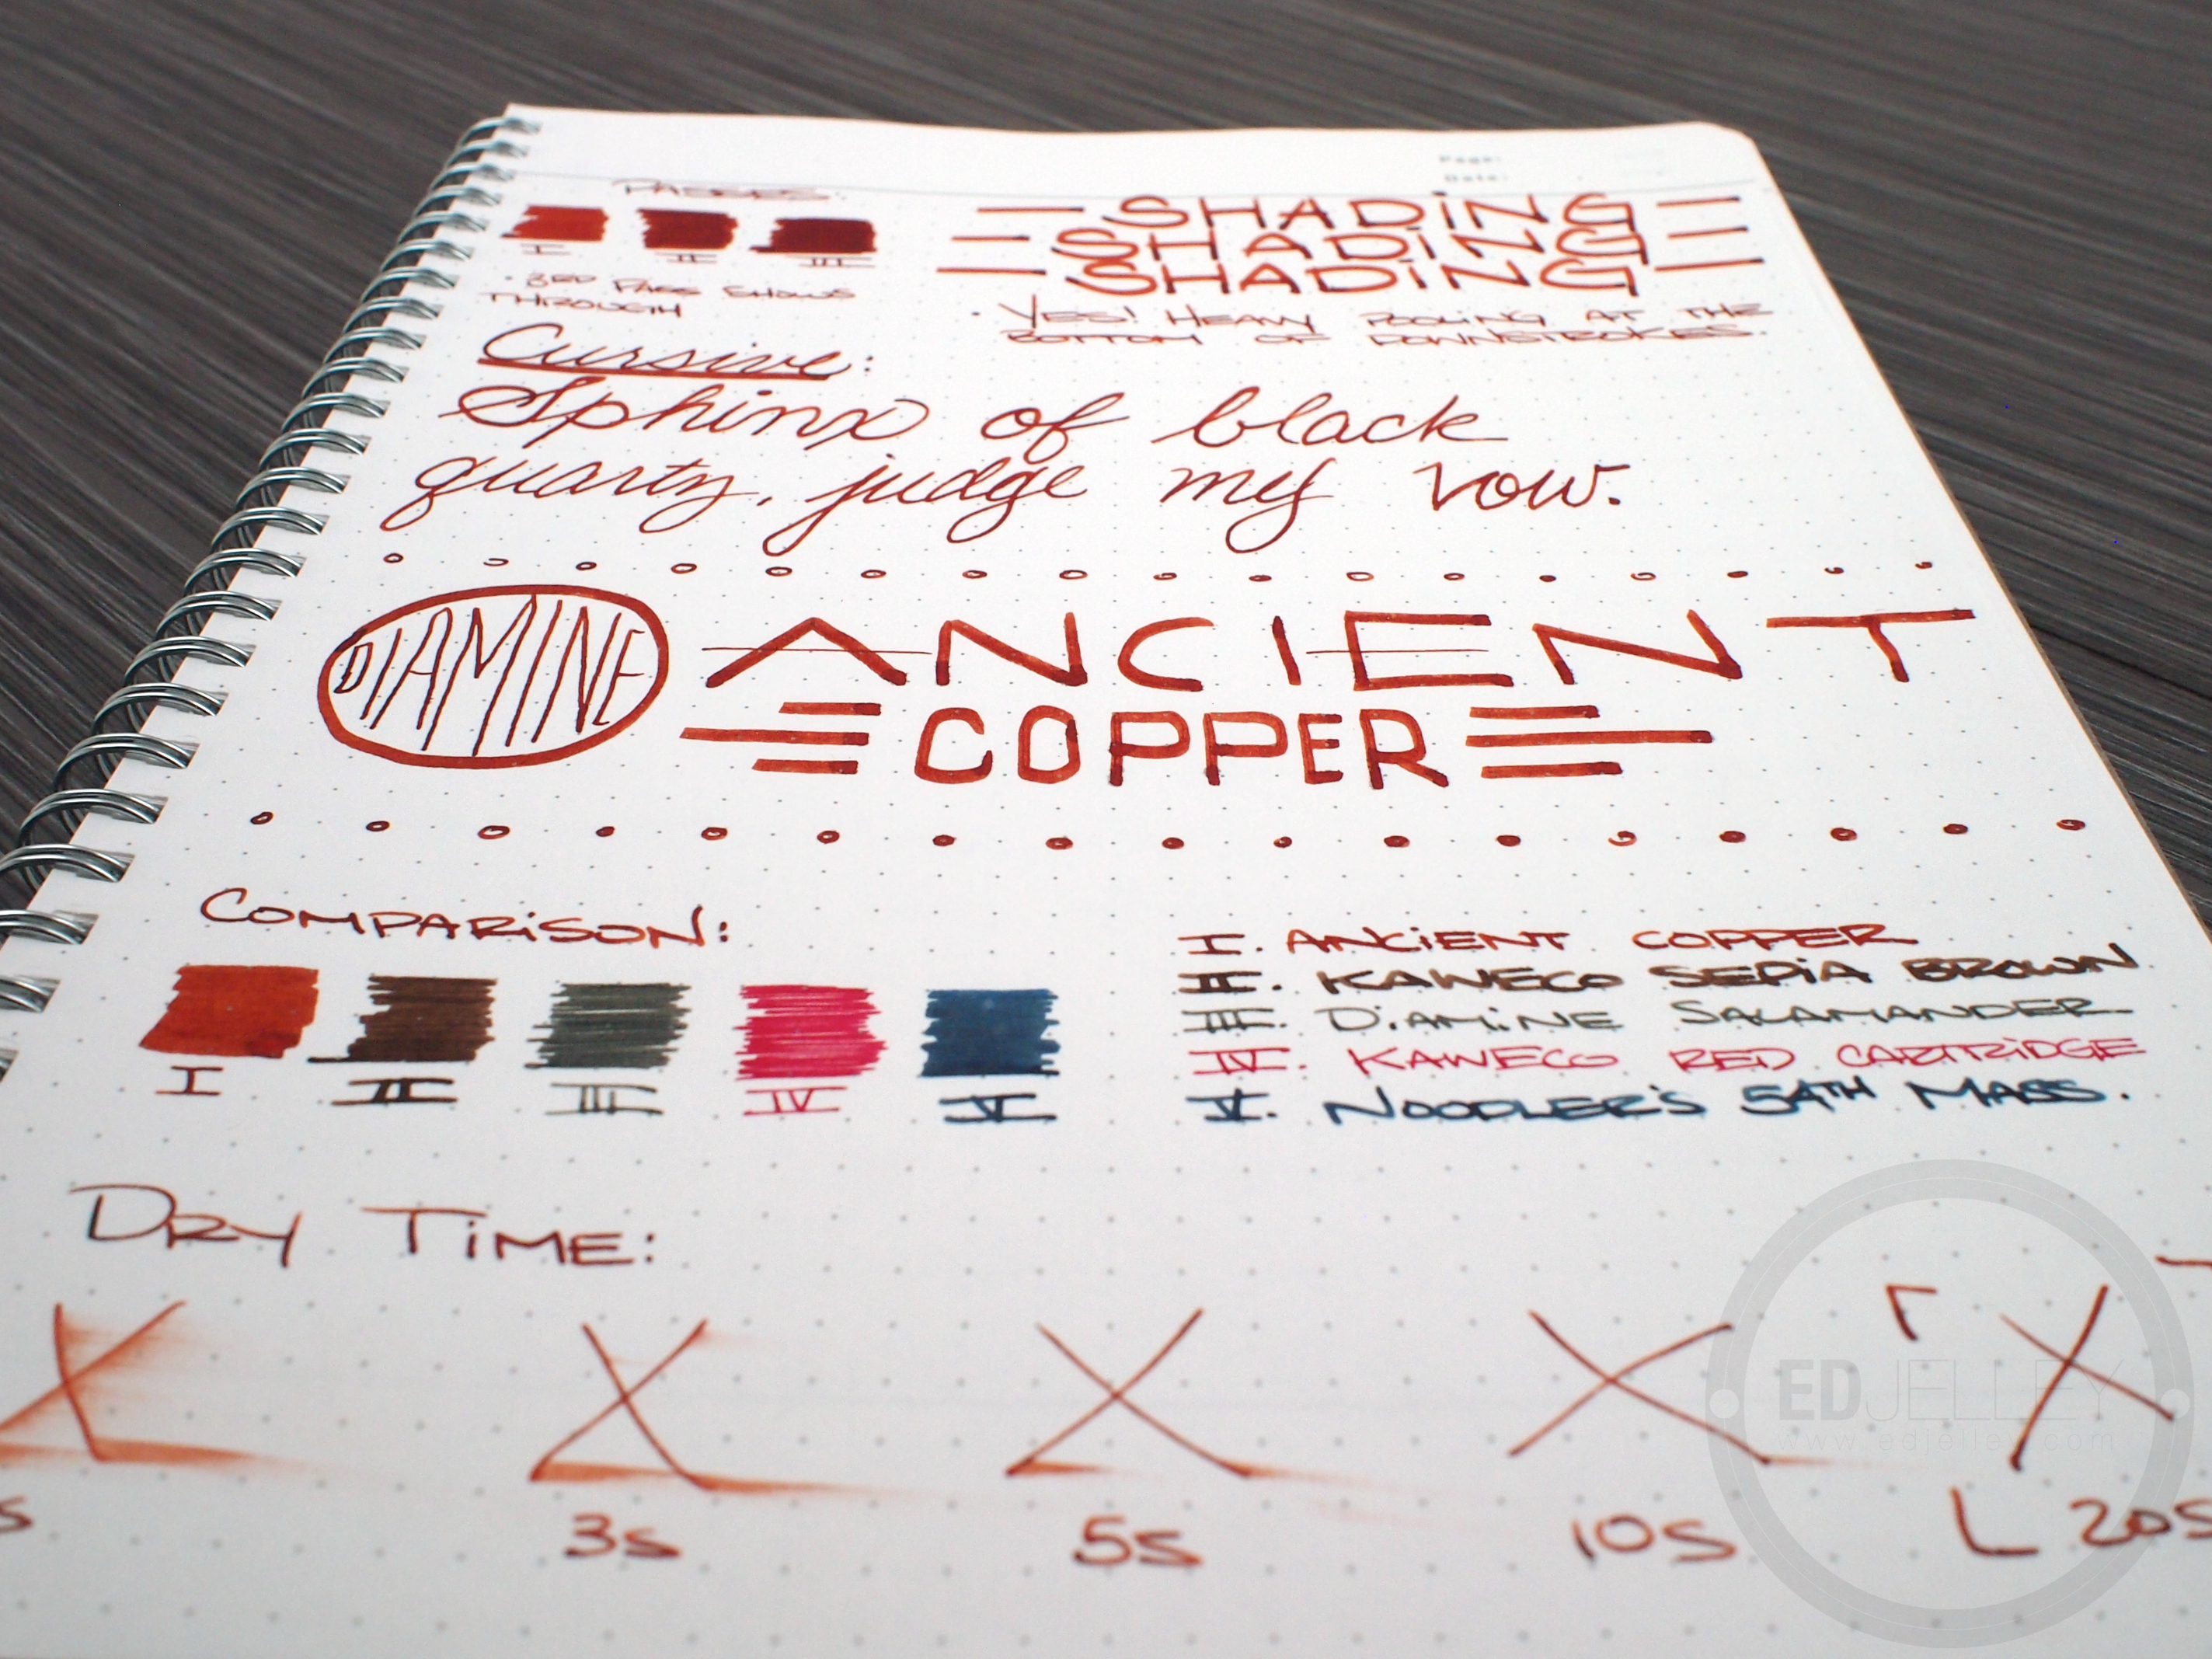 Page:
Date:
PASSES:
I II III
· 3RD PASS SHOWS
THROUGH
SHADiNG
SHADiNG
SHADiNG
· YES! HEAVY POOLING AT THE
BOTTOM OF DOWNSTROKES.
Cursive:
Sphinx of black
quartz, judge my vow.
DIAMINE
ANCIENT
COPPER
COMPARiSON:
I II III IV V
I. ANCiENT COPPER
II. KAWECO SEPiA BROWN
III. DiAMiNE SALAMANDER
IV. KAWECO RED CARTRiDGE
V. NOODLER'S 54TH MASS.
DRY TiME:
3s 5s 10s 20s
EDJELLEY
www.edjelley.com